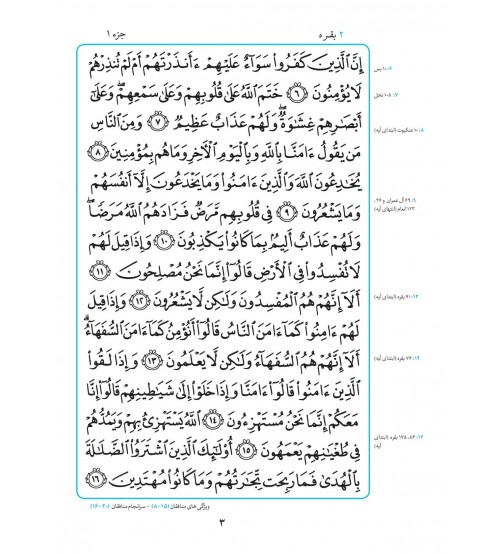 ۲ بقره
جزء ۱
إِنَّ الَّذِينَ كَفَرُوا سَوَاءٌ عَلَيْهِمْ ءَأَنذَرْتَهُمْ أَمْ لَمْ تُنذِرْهُمْ
لَا يُؤْمِنُونَ ﴿۶﴾ خَتَمَ اللَّهُ عَلَىٰ قُلُوبِهِمْ وَعَلَىٰ سَمْعِهِمْ ۖ وَعَلَىٰ
أَبْصَارِهِمْ غِشَاوَةٌ ۖ وَلَهُمْ عَذَابٌ عَظِيمٌ ﴿۷﴾ وَمِنَ النَّاسِ
مَن يَقُولُ ءَامَنَّا بِاللَّهِ وَبِالْيَوْمِ الْآخِرِ وَمَا هُم بِمُؤْمِنِينَ ﴿۸﴾
يُخَادِعُونَ اللَّهَ وَالَّذِينَ ءَامَنُوا وَمَا يَخْدَعُونَ إِلَّا أَنفُسَهُمْ
وَمَا يَشْعُرُونَ ﴿۹﴾ فِي قُلُوبِهِم مَّرَضٌ فَزَادَهُمُ اللَّهُ مَرَضًا ۖ
وَلَهُمْ عَذَابٌ أَلِيمٌ بِمَا كَانُوا يَكْذِبُونَ ﴿۱۰﴾ وَإِذَا قِيلَ لَهُمْ
لَا تُفْسِدُوا فِي الْأَرْضِ قَالُوا إِنَّمَا نَحْنُ مُصْلِحُونَ ﴿۱۱﴾
أَلَا إِنَّهُمْ هُمُ الْمُفْسِدُونَ وَلَٰكِن لَّا يَشْعُرُونَ ﴿۱۲﴾ وَإِذَا قِيلَ
لَهُمْ ءَامِنُوا كَمَا ءَامَنَ النَّاسُ قَالُوا أَنُؤْمِنُ كَمَا ءَامَنَ السُّفَهَاءُ ۗ
أَلَا إِنَّهُمْ هُمُ السُّفَهَاءُ وَلَٰكِن لَّا يَعْلَمُونَ ﴿۱۳﴾ وَإِذَا لَقُوا
الَّذِينَ ءَامَنُوا قَالُوا ءَامَنَّا وَإِذَا خَلَوْا إِلَىٰ شَيَاطِينِهِمْ قَالُوا إِنَّا
مَعَكُمْ إِنَّمَا نَحْنُ مُسْتَهْزِءُونَ ﴿۱۴﴾ اللَّهُ يَسْتَهْزِئُ بِهِمْ وَيَمُدُّهُمْ
فِي طُغْيَانِهِمْ يَعْمَهُونَ ﴿۱۵﴾ أُولَٰئِكَ الَّذِينَ اشْتَرَوُا الضَّلَالَةَ
بِالْهُدَىٰ فَمَا رَبِحَت تِّجَارَتُهُمْ وَمَا كَانُوا مُهْتَدِينَ ﴿۱۶﴾
۶: ۱۰ یس
۷: ۱۰۸ نحل
۸: ۱۰ عنکبوت (ابتدای آیه)
۹: ۶۹ آل عمران و ۲۶،
۱۲۳ انعام (انتهای آیه)
۱۳: ۹۱ بقره (ابتدای آیه)
۱۴: ۷۶ بقره (ابتدای آیه)
۱۶: ۸۶، ۱۷۵ بقره (ابتدای
آیه)
ویژگی های منافقان (۱۵-۸) - سرانجام منافقان (۲۰-۱۶)
۳